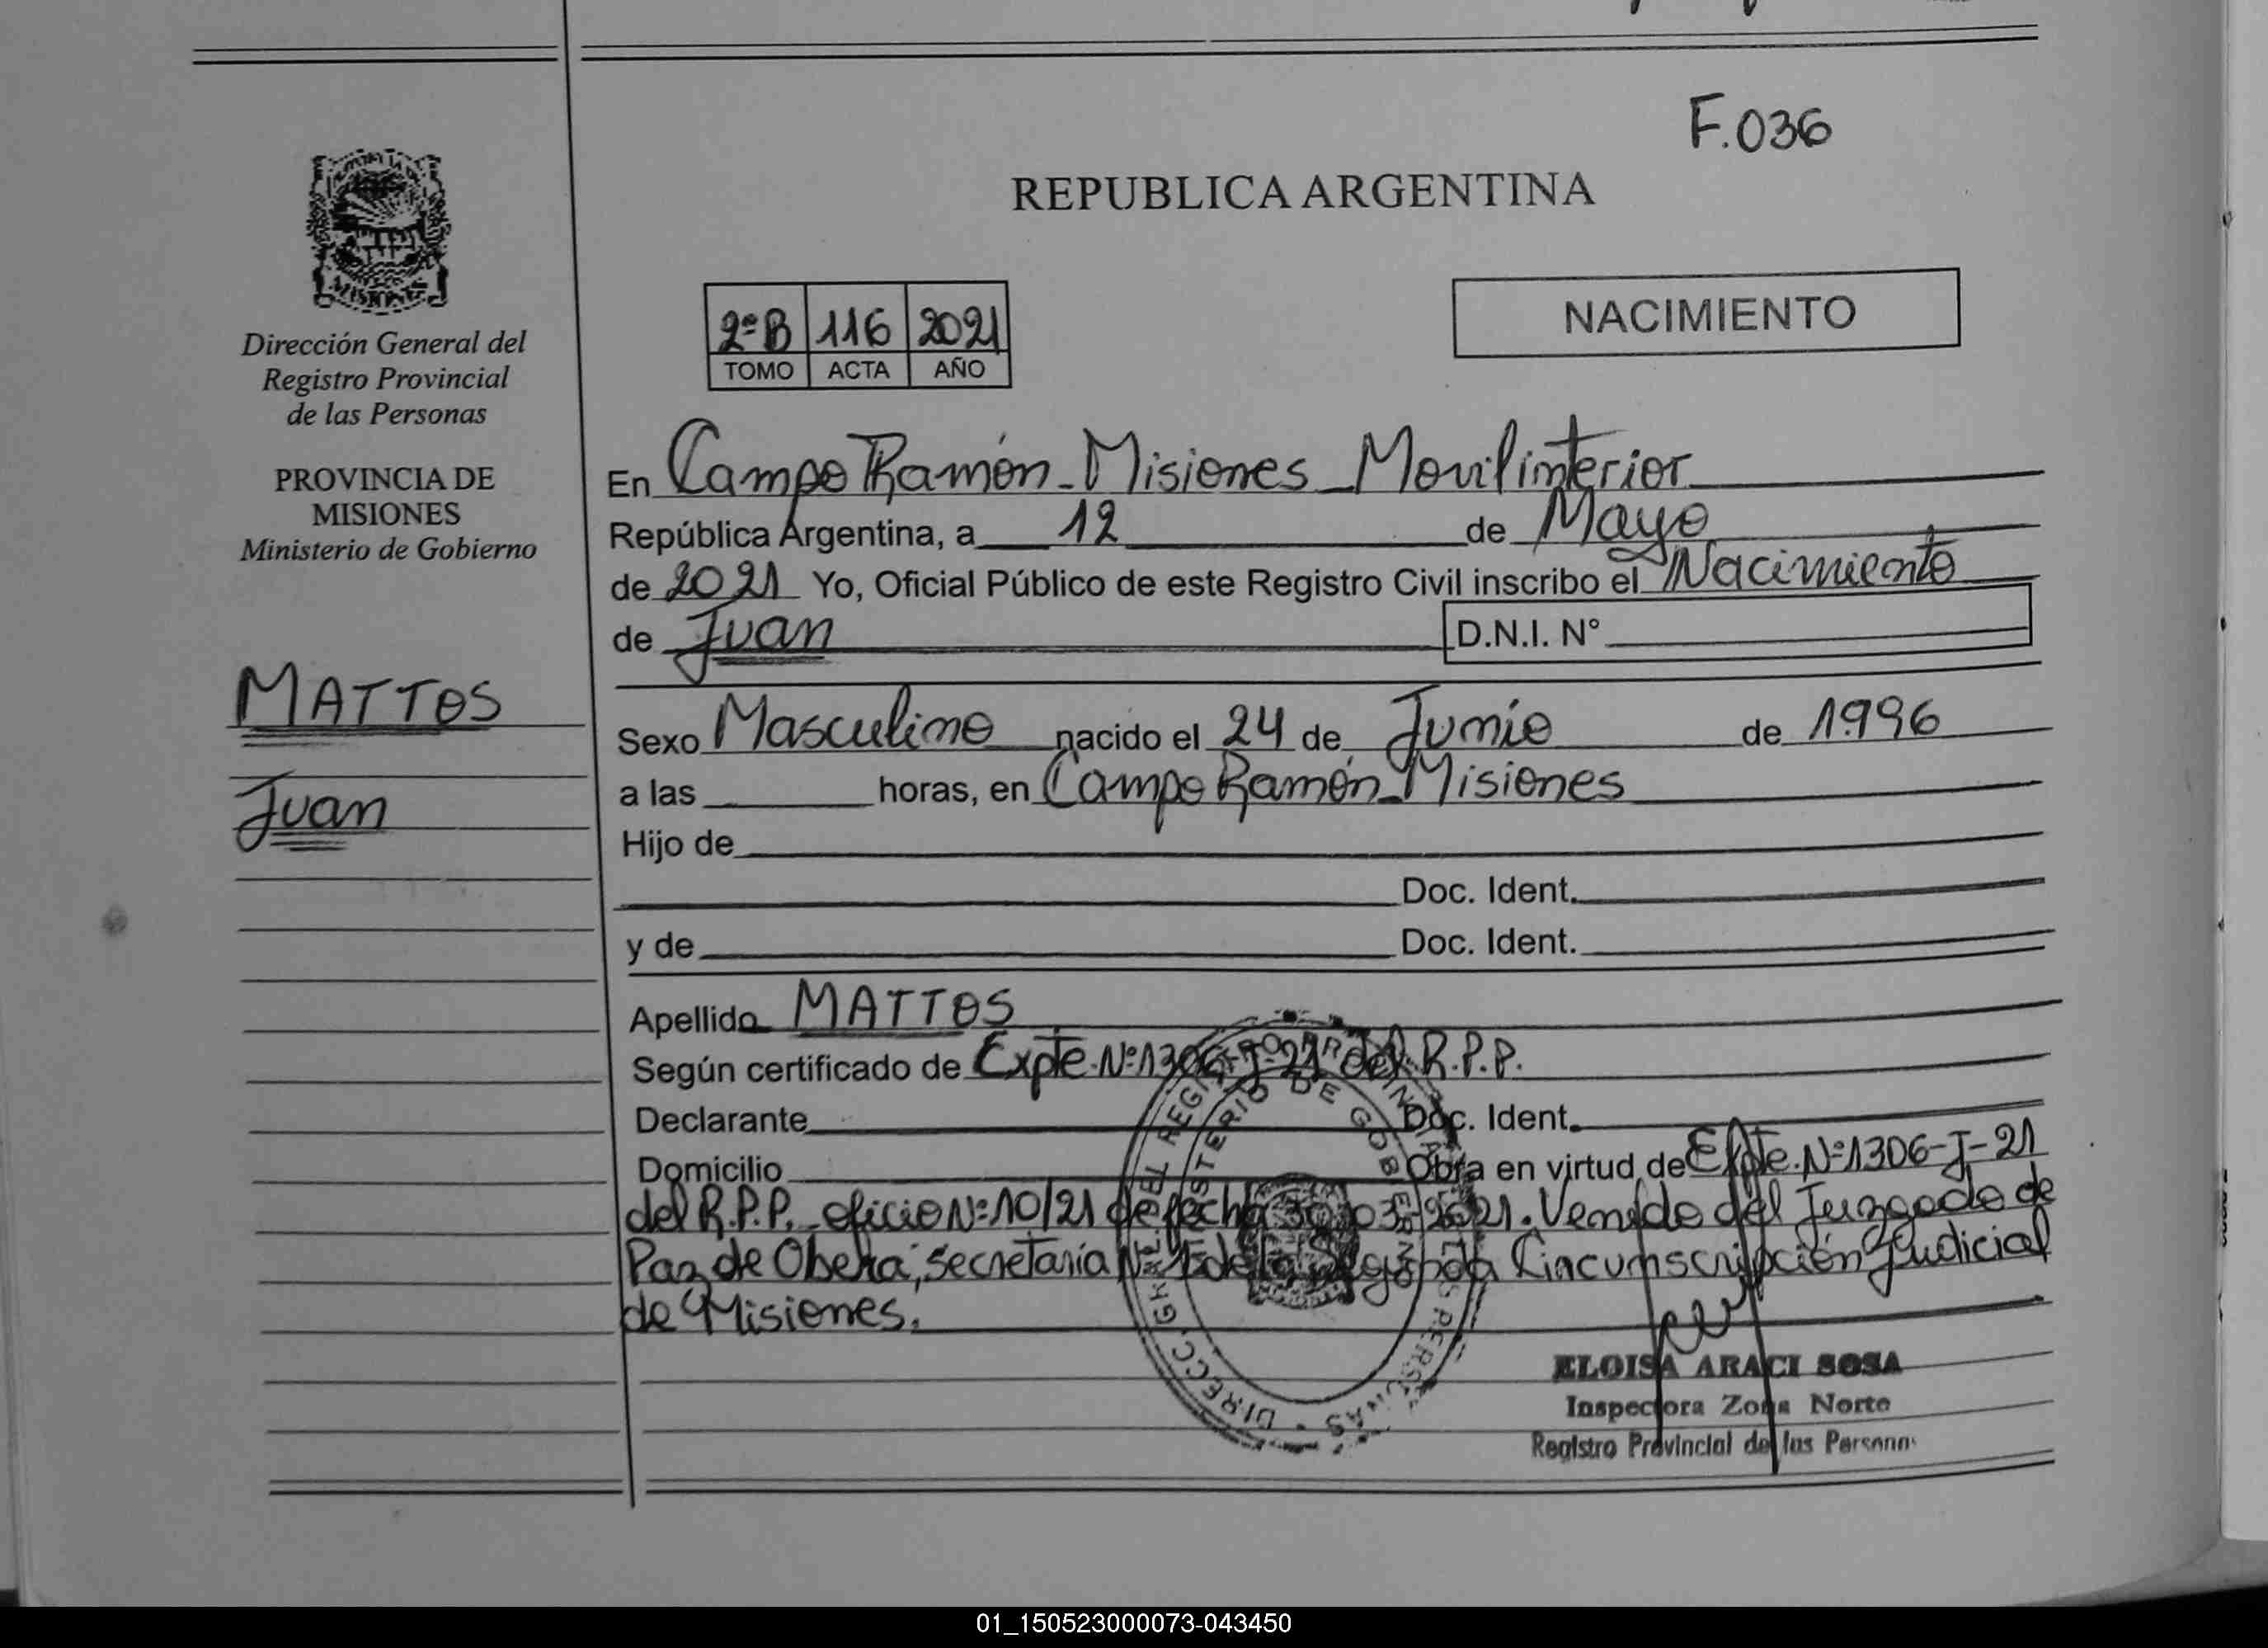 F.036
REPUBLICA ARGENTINA
NACIMIENTO
2ºB 116 2021
TOMO ACTA AÑO
MISIONES
Dirección General del
Registro Provincial
de las Personas
PROVINCIA DE
MISIONES
Ministerio de Gobierno
MATTOS
Juan
En Campo Ramón - Misiones - Movil interior
República Argentina, a 12 de Mayo
de 2021 Yo, Oficial Público de este Registro Civil inscribo el Nacimiento
de Juan D.N.I. N°
Sexo Masculino nacido el 24 de Junio de 1996
a las horas, en Campo Ramón - Misiones
Hijo de
Doc. Ident.
y de Doc. Ident.
Apellido MATTOS
Según certificado de Expte. Nº 1306-J-21 del R.P.P.
Declarante Doc. Ident.
Domicilio Obra en virtud de Expte. Nº 1306-J-21
del R.P.P. oficio Nº 10/21 de fecha 2021. Venido del Juzgado de
Paz de Obera, Secretaría de la Segunda Circunscripción Judicial
de Misiones.
ELOISA ARACI SOSA
Inspectora Zona Norte
Registro Provincial de las Personas
01_150523000073-043450